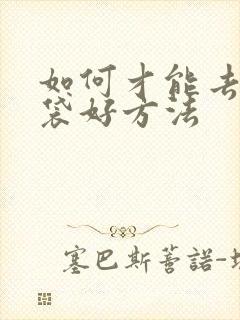 如何才能去
袋好方法
塞巴斯蒈諾-埃